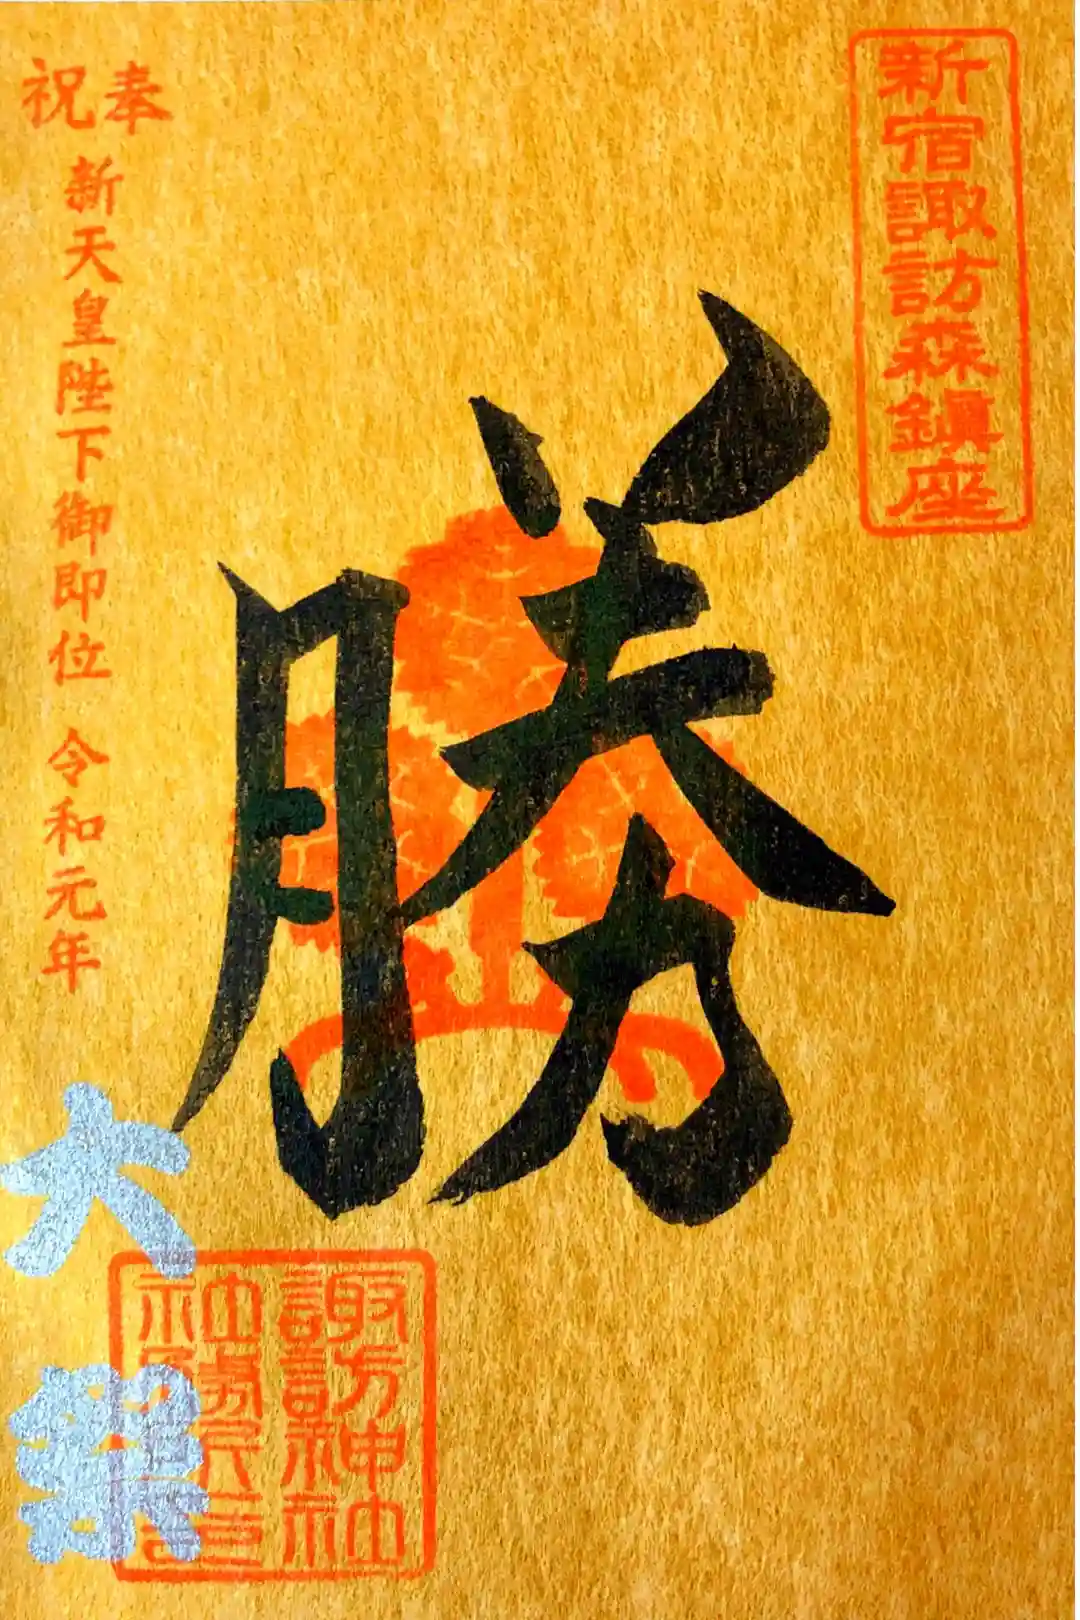 新宿諏訪森鎮座
勝
奉祝
新天皇陛下御即位 令和元年
大祭
諏訪神社